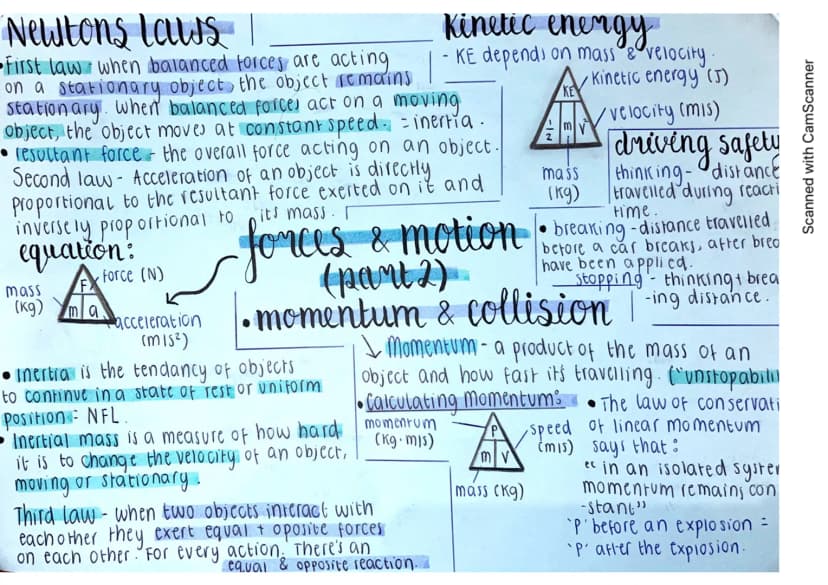 Newtons laws
• First law - when balanced forces are acting
on a stationary object, the object remains
stationary. When balanced forces act on a moving
object, the object moves at constant speed. = inertia.
• resultant force - the overall force acting on an object.
Second law - Acceleration of an object is directly
proportional to the resultant force exerted on it and
inversely proportional to its mass.
equation:
force (N)
mass
(kg)
F
m a
acceleration
(m/s²)
Kinetic energy
- KE depends on mass & velocity.
Kinetic energy (J)
KE
½ m v²
velocity (m/s)
mass
(kg)
driving safety
thinking - distance
travelled during reacti
time.
• breaking - distance travelled
before a car breaks, after brea
have been applied.
stopping - thinking + brea
-ing distance.
forces & motion
(part 2)
• momentum & collision
Momentum - a product of the mass of an
object and how fast it's travelling. ("unstopabili
• Calculating Momentum:
momentum
(kg·m/s)
P
m v
speed
(m/s)
mass (kg)
• The law of conservati
of linear momentum
says that:
"in an isolated system
momentum remains con
-stant"
'P' before an explosion =
'P' after the explosion.
• Inertia is the tendancy of objects
to continue in a state of rest or uniform
position = NFL.
• Inertial mass is a measure of how hard
it is to change the velocity of an object,
moving or stationary.
Third law - when two objects interact with
eachother they exert equal + oposite forces
on each other. For every action. There's an
equal & opposite reaction.
Scanned with CamScanner